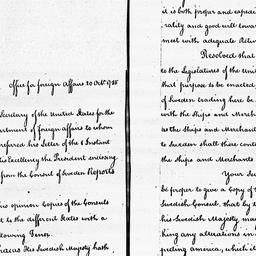 Office for foreign Affairs 20 Octr. 1785
Secretary of the United States for the
Department of foreign affairs to whom
referred his Letter of the 1 Instant
His Excellency the President enclosing
from the Consul of Sweden Reports
his opinion Copies of the Consuls
to the different States with a
following Tenor.
Whereas His Swedish Majesty hath
it is both proper and expedi
rality and good will toward
meet with adequate Retur
Resolved that
to the Legislatures of the Unit
that purpose to be enacted,
of Sweden trading here be
with the Ships and Merch
as the Ships and Merchants
to Sweden shall there conti
the Ships and Merchants
Your Sec
be proper to give a Copy of t
Swedish Consul, that by t
his Swedish Majesty, may
king any alterations in
pecting America, which it